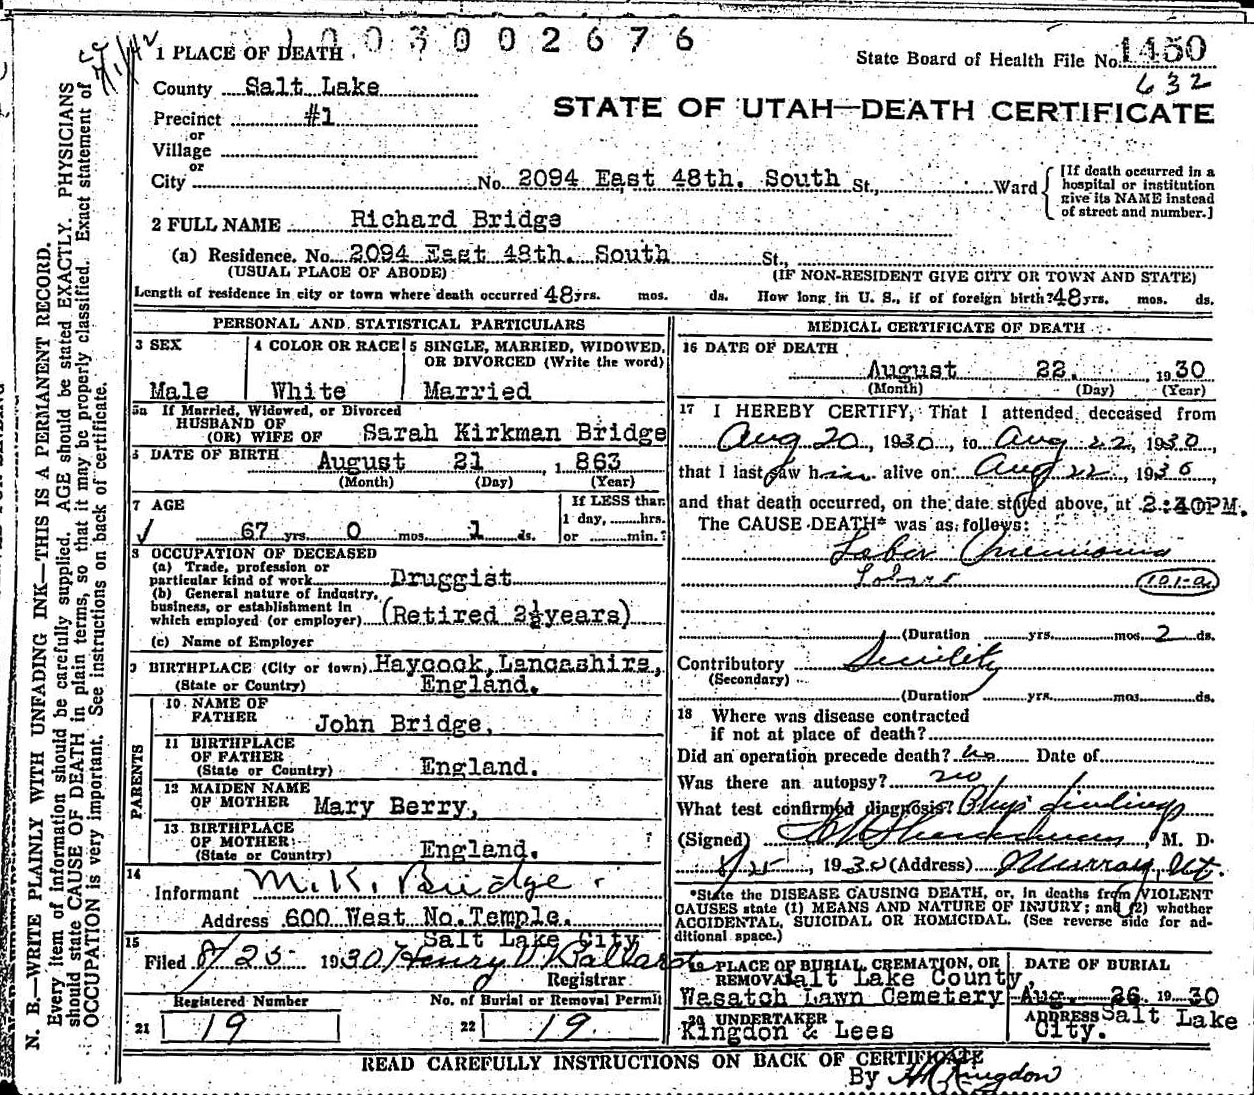 1003002676
1 PLACE OF DEATH
State Board of Health File No. 1450
632
County Salt Lake
STATE OF UTAH—DEATH CERTIFICATE
Precinct #1
or
Village
or
City No. 2094 East 48th. South St., Ward
[If death occurred in a hospital or institution give its NAME instead of street and number.]
2 FULL NAME Richard Bridge
(a) Residence. No. 2094 East 48th. South St.,
(USUAL PLACE OF ABODE) (IF NON-RESIDENT GIVE CITY OR TOWN AND STATE)
Length of residence in city or town where death occurred 48 yrs. mos. ds. How long in U. S., if of foreign birth? 48 yrs. mos. ds.
PERSONAL AND STATISTICAL PARTICULARS
3 SEX 4 COLOR OR RACE 5 SINGLE, MARRIED, WIDOWED,
OR DIVORCED (Write the word)
Male White Married
5a If Married, Widowed, or Divorced
HUSBAND OF
(OR) WIFE OF Sarah Kirkman Bridge
6 DATE OF BIRTH August 21 , 1863
(Month) (Day) (Year)
7 AGE If LESS than
1 day, hrs.
67 yrs. 0 mos. 1 ds. or min.?
8 OCCUPATION OF DECEASED
(a) Trade, profession or
particular kind of work Druggist
(b) General nature of industry,
business, or establishment in
which employed (or employer) (Retired 2½years)
(c) Name of Employer
9 BIRTHPLACE (City or town) Haycock, Lancashire,
(State or Country) England.
PARENTS
10 NAME OF
FATHER John Bridge,
11 BIRTHPLACE
OF FATHER
(State or Country) England.
12 MAIDEN NAME
OF MOTHER Mary Berry,
13 BIRTHPLACE
OF MOTHER
(State or Country) England.
14
Informant M. K. Bridge
Address 600 West No. Temple.
Salt Lake City
15
Filed 8/25 1930 Henry V Kallard
Registrar
Registered Number No. of Burial or Removal Permit
21 19 22 19.
MEDICAL CERTIFICATE OF DEATH
16 DATE OF DEATH
August 22. 1930
(Month) (Day) (Year)
17 I HEREBY CERTIFY, That I attended deceased from
Aug 20, 1930, to Aug 22, 1930
that I last saw him alive on Aug 22, 1930,
and that death occurred, on the date stated above, at PM.
The CAUSE DEATH* was as follows:
Lober Pneumonia
101-a
(Duration yrs. mos. 2 ds.
Contributory Senility
(Secondary)
(Duration yrs. mos. ds.
18 Where was disease contracted
if not at place of death?
Did an operation precede death? no Date of
Was there an autopsy? no
What test confirmed diagnosis? Phys findings
(Signed) , M. D.
8/25, 1930 (Address) Murray, Ut.
*State the DISEASE CAUSING DEATH, or, in deaths from VIOLENT
CAUSES state (1) MEANS AND NATURE OF INJURY; and (2) whether
ACCIDENTAL, SUICIDAL OR HOMICIDAL. (See reverse side for ad-
ditional space.)
19 PLACE OF BURIAL, CREMATION, OR DATE OF BURIAL
REMOVAL Salt Lake County,
Wasatch Lawn Cemetery Aug. 26 1930
20 UNDERTAKER ADDRESS Salt Lake
Kingdon & Lees City.
READ CAREFULLY INSTRUCTIONS ON BACK OF CERTIFICATE
By Kingdon
N. B.—WRITE PLAINLY WITH UNFADING INK—THIS IS A PERMANENT RECORD.
Every item of information should be carefully supplied. AGE should be stated EXACTLY. PHYSICIANS
should state CAUSE OF DEATH in plain terms, so that it may be properly classified. Exact statement of
OCCUPATION is very important. See instructions on back of certificate.